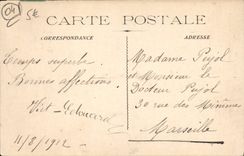 04
5€
CARTE POSTALE
CORRESPONDANCE
ADRESSE
Temps superbe
Bonnes affections
Edouard
11/8/1912
Madame Pujol
et Monsieur le
Docteur Pujol
30 rue des Minimes
Marseille